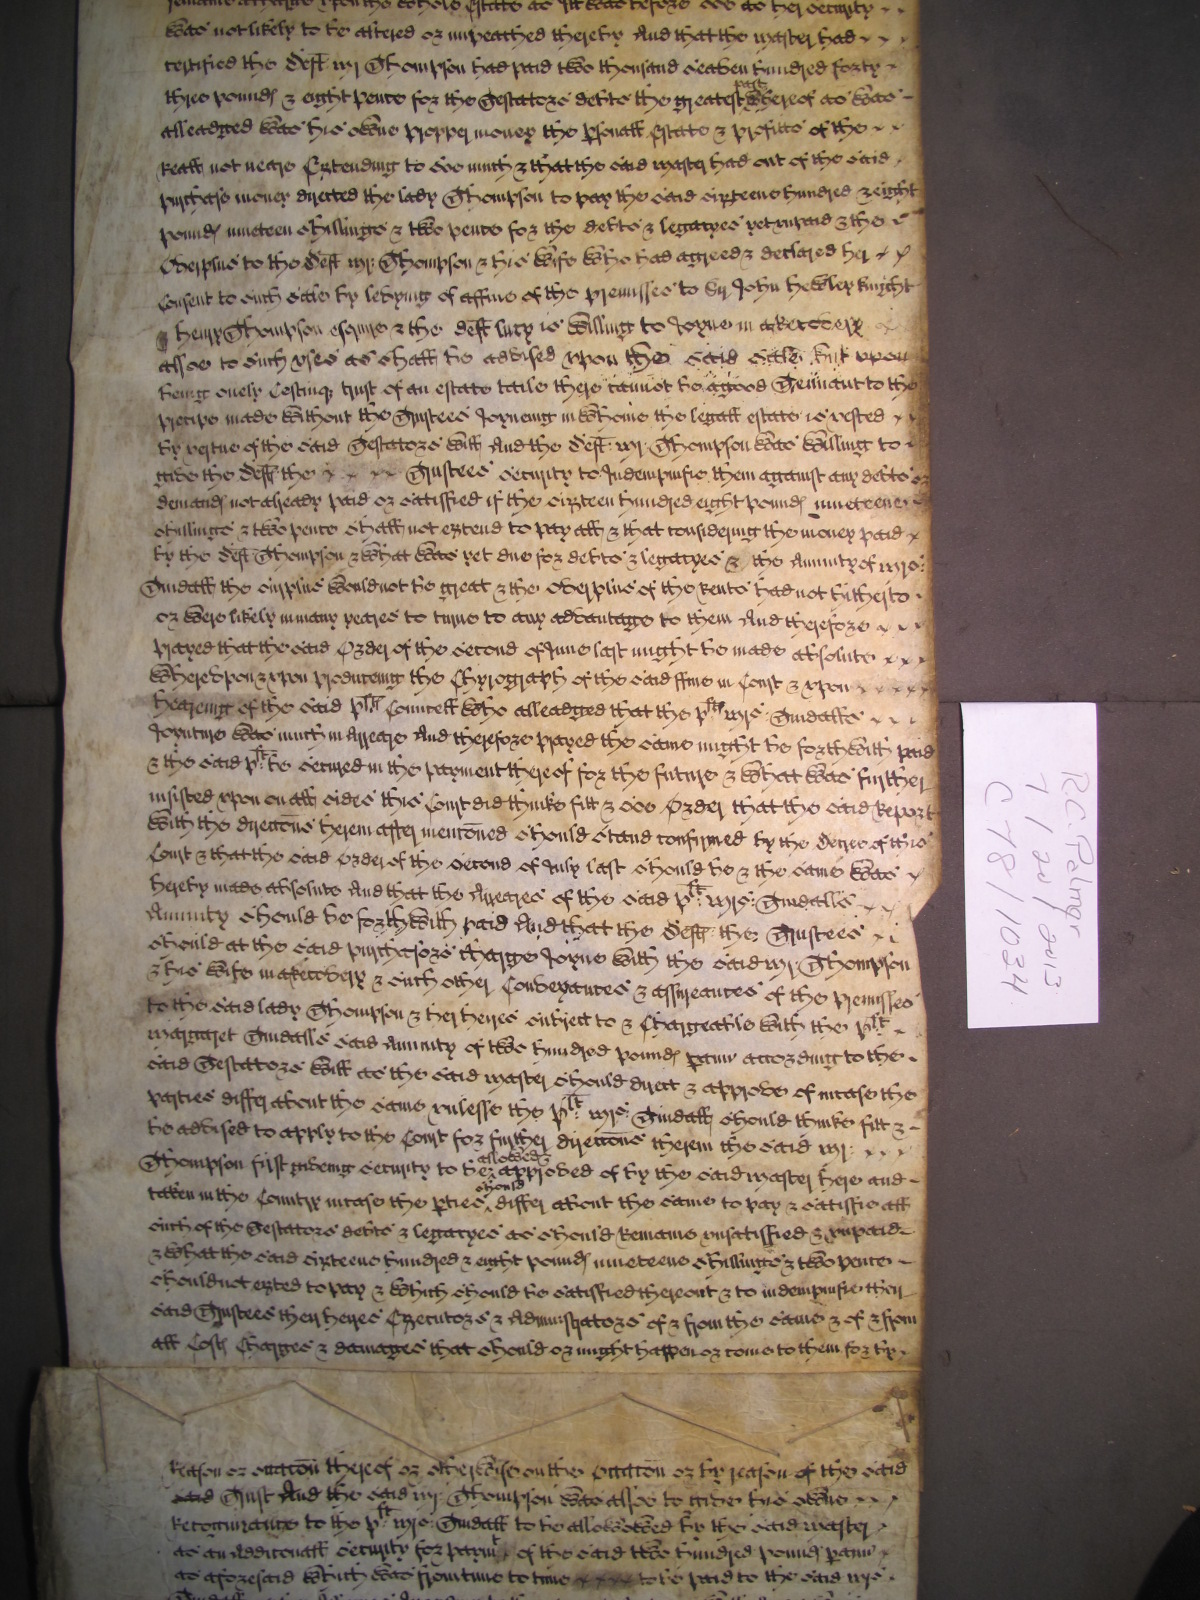 remaine a charge upon the whole Estate as itt was before soe as her security
was not likely to be altered or impeached thereby And that the Master had
certified the Deft Mr Thompson had paid two thousand seaven hundred forty
three pounds & eight pence for the Testators debts the greatest part whereof as was
alleadged was his owne propper money the psonall Estate & profitts of the
Reall not neare Extending to soe much & that the said Master had out of the said
purchase money directed the lady Thompson to pay the said sixteene hundred & eight
pounds nineteen shillings & two pence for the debts & legacyes yet unpaid & the
Overplus to the Deft Mr: Thompson & his wife who had agreed & declared her
Consent to such sale by levying of a ffine of the premisses to Sr John Hewley Knight
& Henry Thompson esquire & the deft Lucy is willing to Joyne in a Recovery
alsoe to such uses as shall be advised upon the said sale but upon
being onely Cestuiq trust of an estate taile there cannot be a good Tennant to the
precipe made without the Trustees Joyneing in whome the legall estate is vested
by vertue of the said Testators will And the Deft Mr Thompson was willing to
give the Defts the Trustees security to Indempnifie them against any debts or
demands not already paid or satisfied if the sixteen hundred eight pounds nineteene
shillings & two pence shall not extend to pay all & that considering the money paid
by the Deft Thompson & what was yet due for debts & legacyes & the Annuity of Mrs:
Tindall the surplus would not be great & the Overplus of the Rents had not hitherto
or were likely in many yeares to turne to any advantage to them And therefore
prayed that the said Order of the second of June last might be made absolute
Whereupon & upon produceing the Chyrograph of the said ffine in Court & upon
heareing of the said plts Councell who alleadged that the plt Mrs: Tindalls
Joynture was much in Arreare And therefore prayed the same might be forthwith paid
& the said plt be secured in the payment thereof for the future & what was further
insisted upon on all sides this Court did thinke fitt & soe Order that the said Report
with the directions herein after mentioned should stand confirmed by the Decree of this
Court & that the said Order of the second of July last should be & the same was
hereby made absolute And that the Arreares of the said plt: Mrs: Tindalls
Annuity should be forthwith paid And that the Defts: the Trustees
should at the said purchasors charge Joyne with the said Mr: Thompson
& his wife in a Recovery & such other Conveyances & assureances of the premisses
to the said lady Thompson & her heyres subject to & Chargeable with the plt
Margaret Tindalls said Annuity of two hundred pounds p ann according to the
said Testators will as the said Master should direct & approve of incase the
parties differ about the same unlesse the plt: Mrs: Tindall should thinke fitt &
be advised to apply to the Court for further directions therein the said Mr:
Thompson first giveing security to be allowed & approved of by the said Master here and
taken in the Country incase the pties should differ about the same to pay & satisfie all
such of the Testators debts & legacyes as should Remaine unsatisfied & unpaid
& what the said sixteene hundred & eight pounds nineteene shillings & two pence
should not exted to pay & which should be satisfied thereout & to indempnifie their
said Trustees their heyres Executors & Administrators of & from the same & of & from
all Costs Charges & damages that should or might happen or come to them for by
Reason or occacon thereof or otherwise on the occacon or by reason of the said
said Trust And the said Mr: Thompson was alsoe to give his owne
Recognizance to the plt Mrs: Tindall to be allowed by the said Master
as an Additonall security for paymt of the said two hundred pounds p ann
as aforesaid which was from time to time to be paid to the said Mrs
R.C. Palmer
7/1/2013
C 78/1034